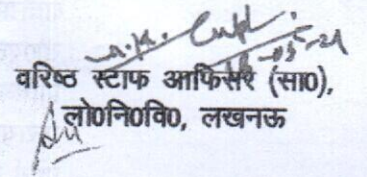 वरिष्ठ स्टाफ आफिसर (सा0),
लो0नि0वि0, लखनऊ